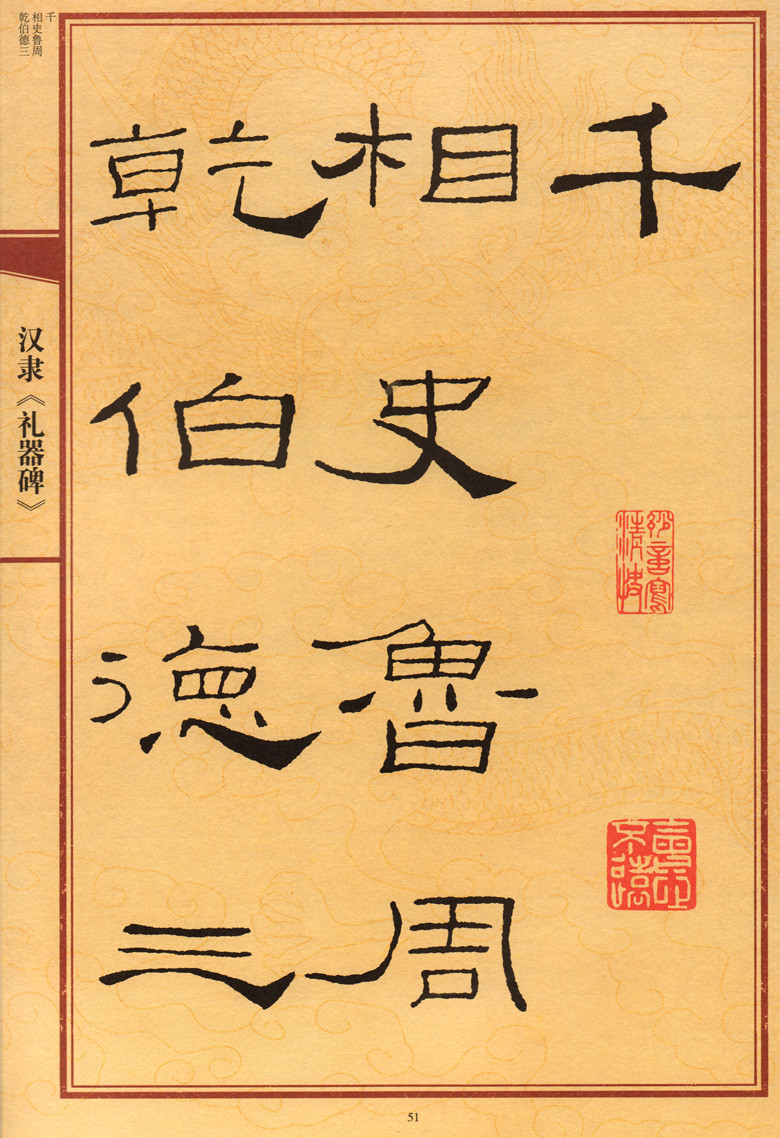 千
相史鲁周
乾伯德三
汉隶《礼器碑》
千
相史魯周
乾伯德三
51